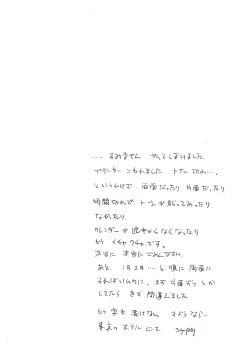 .... すみません やってしまいました.
プリンター こわれました トナー切れ....
というわけで、両面だったり 片面だったり
時間切れで、トーンが貼ってあったり
なかったり
カレンダーが途中からなくなったり
もう メチャクチャです。
本当に 本当に ごめんなさい
あと、1月2月.... と 順に 両面に
すればいいのに、まず 片面ずつ とか
してたら 色々 間違えました
もう 字も 書けない さようなら..
東京の ホテル にて